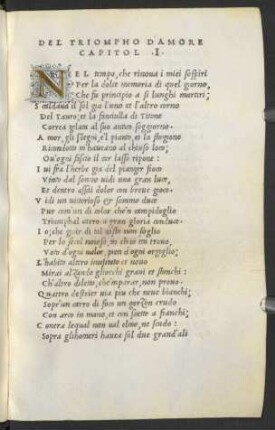 DEL TRIOMPHO D'AMORE
CAPITOL .I.
NEL tempo, che rinoua i miei sospiri
Per la dolce memoria di quel giorno,
Che fu principio a si lunghi martiri;
Scaldaua il sol gia l'uno et l'altro corno
Del Tauro; et la fanciulla di Titone
Correa gelata al suo antico soggiorno.
Amor, gli sdegni, e'l pianto, et la stagione
Ricondotto m'haueano al chiuso loco,
Ou'ogni fascio il cor lasso ripone:
Iui fra l'herbe gia del pianger fioco
Vinto dal sonno uidi una gran luce,
Et dentro assai dolor con breue gioco.
Vidi un uittorioso et sommo duce
Pur com'un di color, che'n campidoglio
Triomphal carro a gran gloria conduce.
Io; che gioir di tal uista non soglio
Per lo secol noioso, in ch'io mi trouo,
Voto d'ogni ualor, pien d'ogni orgoglio;
L'habito altero inusitato et nouo
Mirai alzando gliocchi graui et stanchi:
Ch'altro diletto, che'mparar, non prouo.
Quattro destrier uia piu che neue bianchi;
Sopr'un carro di foco un garzon crudo
Con arco in mano, et con saette a fianchi;
Contra lequal non ual elmo, ne scudo:
Sopra gli homeri hauea sol due grand'ali